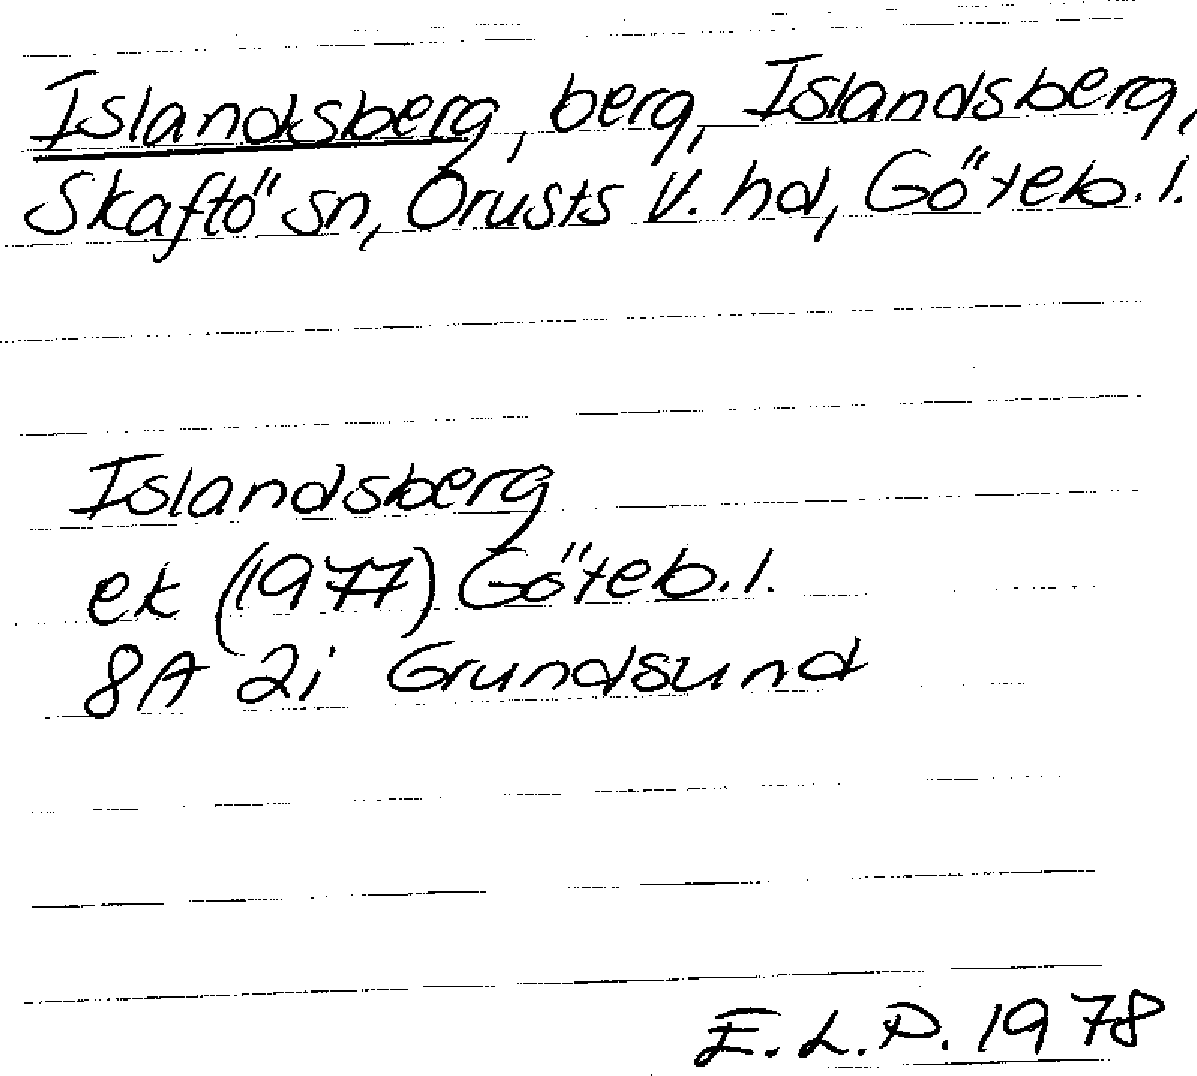 Islandsberg, berg, Islandsberg,
Skaftö sn, Orusts V. hd, Göteb. l.
Islandsberg
ek (1977) Göteb. l.
8A 2i Grundsund
E. L. P. 1978